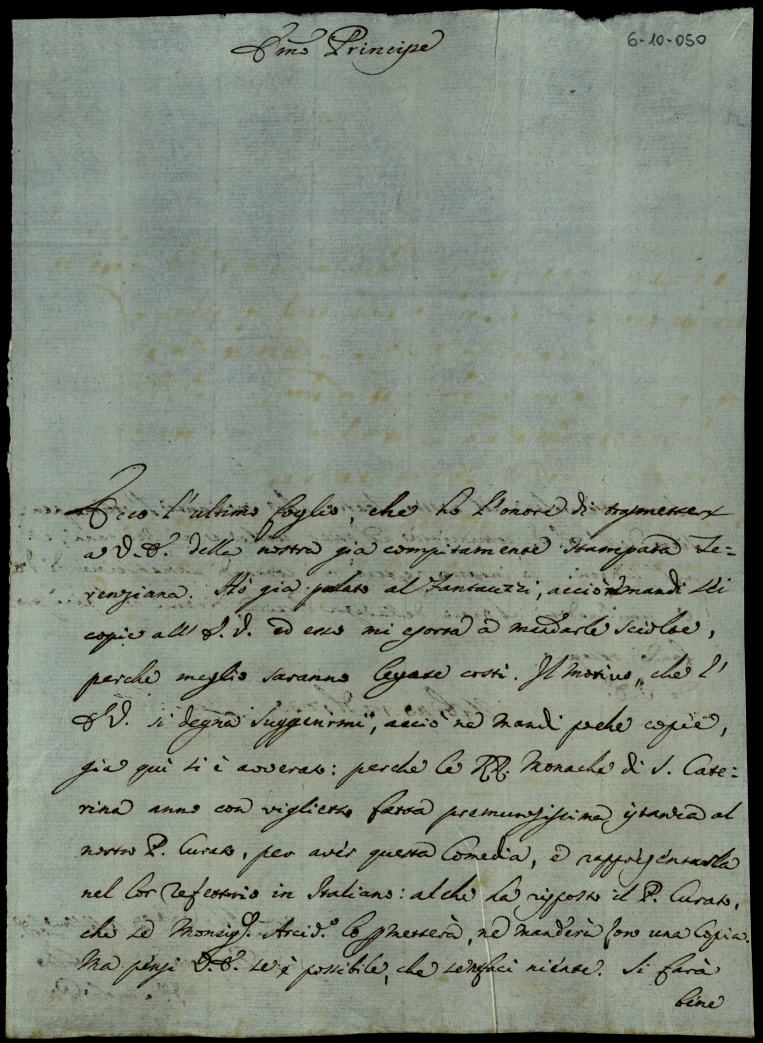 Emo Principe
6-10-050
Ecco l'ultimo foglio, che ho l'onore di trasmetter
a V. E. della nostra già compitamente stampata Te=
renziana. Hò già parlato al Fantauzzi, acciò mandi sei
copie all' E. V. ed esso mi esorta à mandarle sciolte,
perche meglio saranno legate costì. Il motivo, che l'
E V. si degna suggerirmi, acciò ne mandi poche copie,
già quì si è avverato: perche le RR. Monache di S. Cate=
rina anno con viglietto fatta premurosissima istanza al
nostro P. Curato, per aver questa Comedia, e rappresentarla
nel lor Refettorio in Italiano: al che hà risposto il P. Curato,
che se Monsig.r Arciv.o lo permetterà, ne manderà loro una Copia.
Ma pensi V. E. se è possibile, che se ne facci niente. Si farà
bene